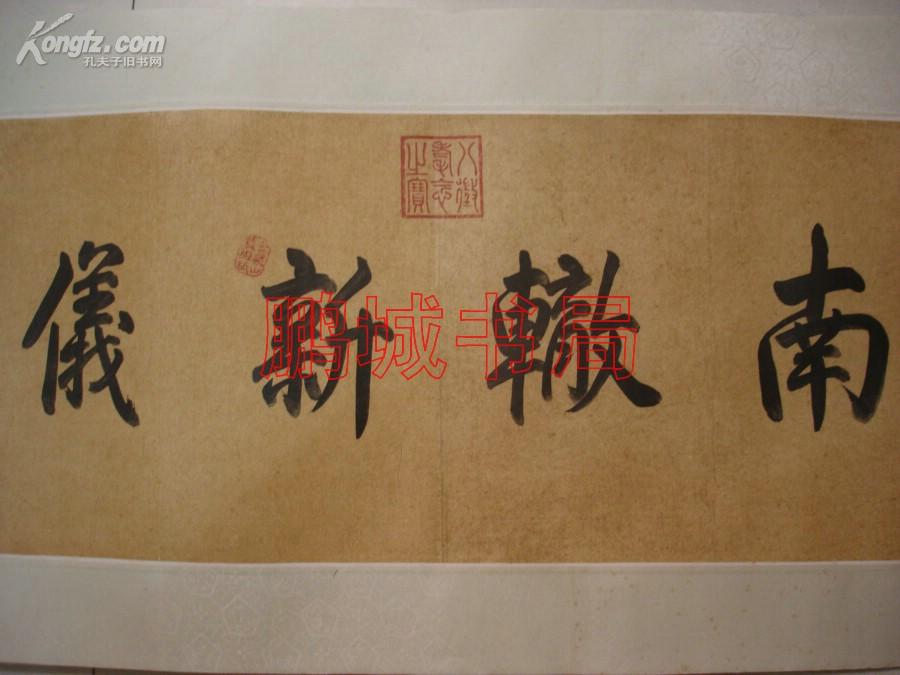 Kongfz.com
孔夫子旧书网
八徵耄念之寶
南轍新儀
鹏城书局